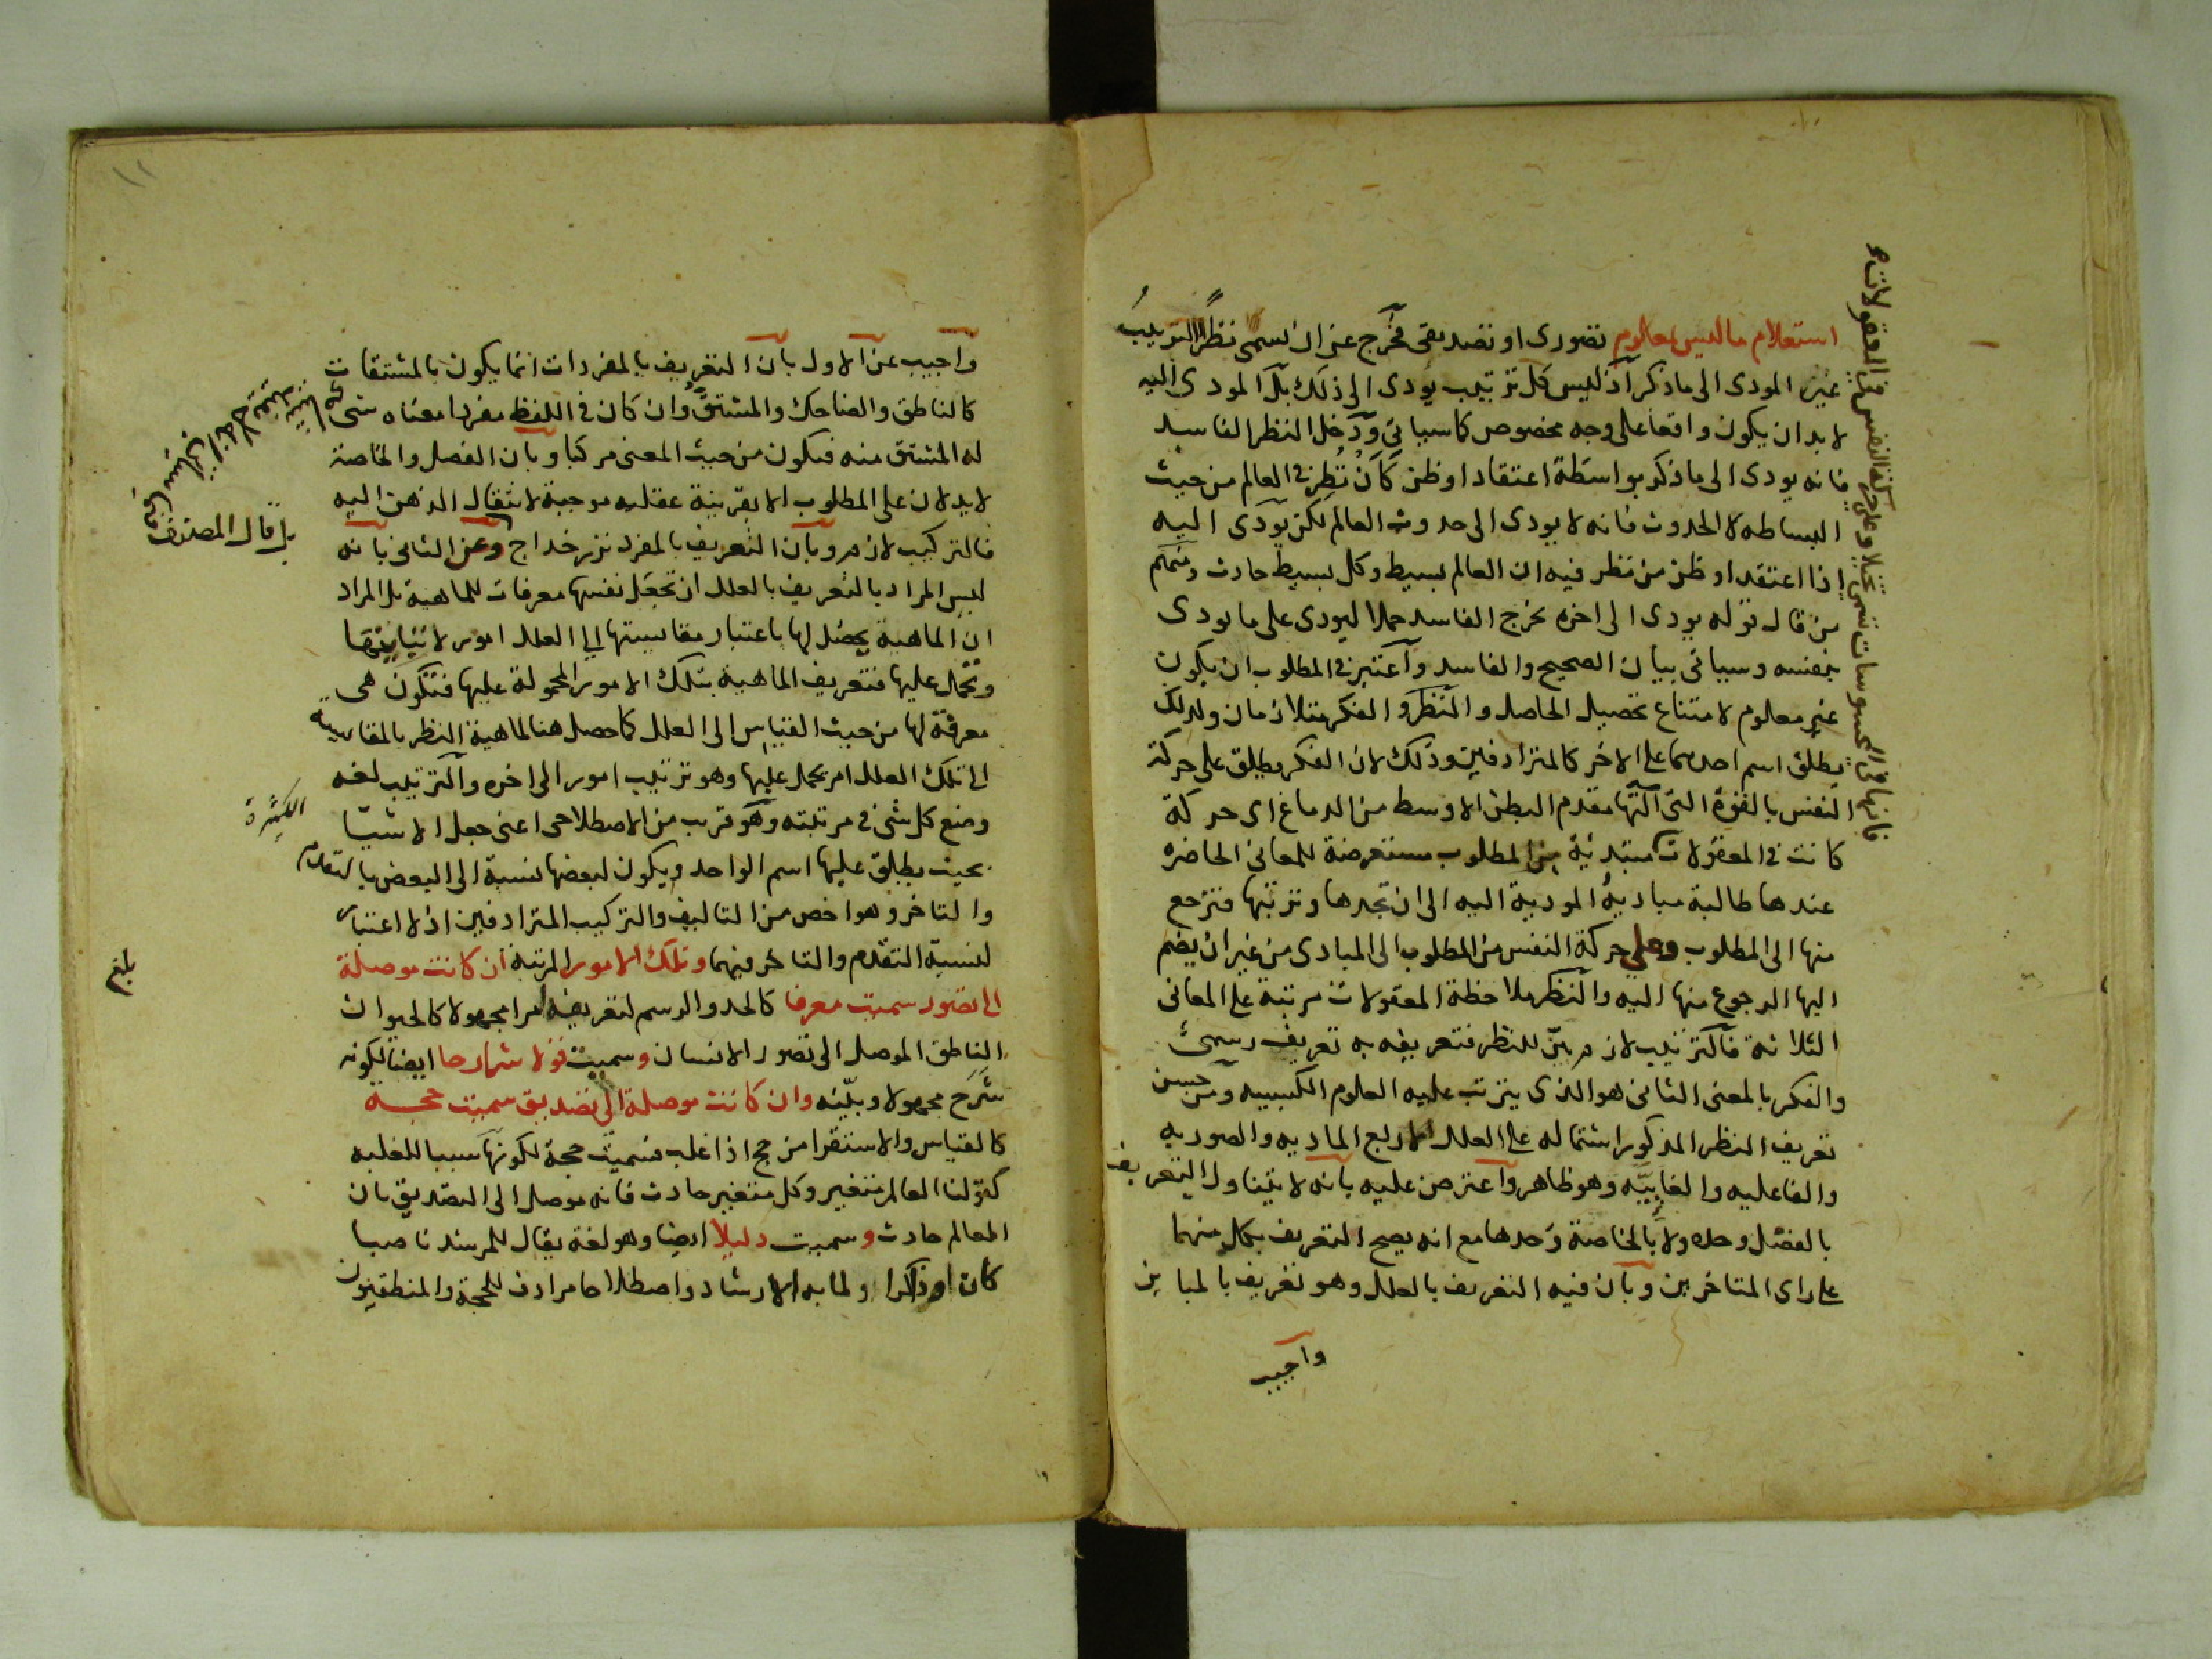 استعلام ما ليس بمعلوم تصورى او تصديقى فخرج عن ان يسمى نظرا الترتيب
غير المودى الى ما ذكر اذ ليس كل ترتيب يودى الى ذلك بل المودى اليه
لا بد ان يكون واقعا على وجه مخصوص كما سياتى ودخل النظر الفاسد
فانه يودى الى ما ذكر بواسطة اعتقاد او ظن كان نظر فى العالم من حيث
البساطه لا الحدوث فانه لا يودى الى حدوث العالم لكن يودى اليه
اذا اعتقد او ظن من نظر فيه ان العالم بسيط وكل بسيط حادث
من قال قوله يودى الى اخره يخرج الفاسد حملا ليودى على ما يودى
بنفسه وسياتى بيان الصحيح والفاسد واعتبر فى المطلوب ان يكون
غير معلوم لامتناع تحصيل الحاصل والنظر و الفكر متلازمان ولذلك
يطلق اسم احدهما على الاخر كالمترادفين وذلك لان الفكر يطلق على حركة
النفس بالقوة التى آلتها مقدم البطن الاوسط من الدماغ اى حركة
كانت فى المعقولات مبتدئية من المطلوب مستعرضة للمعانى الحاضره
عندها طالبة مباديه المودية اليه الى ان تجدها وترتبها فترجع
منها الى المطلوب وعلى حركة النفس من المطلوب الى المبادى من غير ان يضم
اليها الرجوع منها اليه والنظر ملاحظة المعقولات مرتبة على المعانى
الثلاثة فالترتيب لازم بين للنظر فتعريفه به تعريف رسمى
والفكر بالمعنى الثانى هو الذى يترتب عليه العلوم الكسبيه ومن حسن
تعريف النظر المذكور اشتماله على العلل الاربع الماديه والصوريه
والفاعليه والغاييّه وهو ظاهر واعترض عليه بانه لا يتناول التعريف
بالفصل وحده ولا بالخاصة وحدها مع انه يصح التعريف بكل منهما
على راى المتاخرين وبان فيه التعريف بالعلل وهو تعريف بالمباين
واجيب
فانها فى المحسوسات تسمى تخيلا وعلى حركة النفس فى المعقولات
واجيب عن الاول بان التعريف بالمفردات انما يكون بالمشتقات
كالناطق والضاحك والمشتق وان كان فى اللفظ مفردا معناه شى
له المشتق منه فيكون من حيث المعنى مركبا وبان الفصل والخاصة
لا يدلان على المطلوب الا بقرينة عقليه موجبة لانتقال الذهن اليه
فالتركيب لازم وبان التعريف بالمفرد نزر خداج وعن الثانى بانه
ليس المراد بالتعريف بالعلل ان تجعل نفسها معرفات للماهية بل المراد
ان الماهية يحصل لها باعتبار مقايستها الى العلل امور لا تباينها
وتحمل عليها فتعريف الماهية بتلك الامور المحمولة عليها فتكون هى
معرفة لها من حيث القياس الى العلل كما حصل هنا لماهية النظر بالمقايسة
الى تلك العلل امر يحمل عليها وهو ترتيب امور الى اخره والترتيب لغه
وضع كل شى فى مرتبته وهو قريب من الاصطلاحى اعنى جعل الاشيا
الكثيرة
بحيث يطلق عليها اسم الواحد ويكون لبعضها نسبة الى البعض بالتقدم
والتاخر وهو اخص من التاليف والتركيب المترادفين اذ لا اعتبار
لنسبة التقدم والتاخر فيهما وتلك الامور المرتبة ان كانت موصلة
الى تصور سميت معرفا كالحد والرسم لتعريفه امرا مجهولا كالحيوان
الناطق الموصل الى تصور الانسان وسميت قولا شارحا ايضا لكونه
شرح مجهولا وبيّنه وان كانت موصلة الى تصديق سميت حجة
كالقياس والاستقرا من حج اذا غلب سميت حجة لكونها سببا للغلبه
كقولنا العالم متغير وكل متغير حادث فانه موصل الى التصديق بان
العالم حادث وسميت دليلا ايضا وهو لغة يقال للمرشد ناصبا
كان او ذاكرا ولما به الارشاد واصطلاحا مرادف للحجة والمنطقيون
بل قال المصنف
بلغ
١١